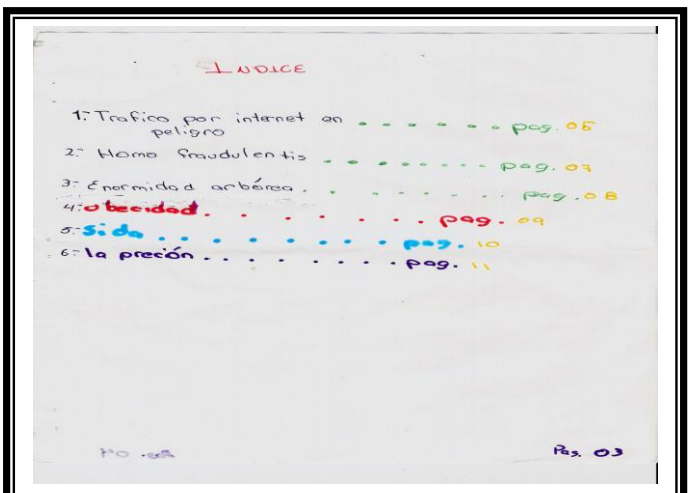 INDICE
1.- Trafico por internet en . . . . . . . pag. 05
peligro
2.- Homo fraudulentis . . . . . . . . pag. 07
3.- Enormidad arbórea . . . . . . . pag. 08
4.- obecidad . . . . . . . . pag. 09
5.- Sida . . . . . . . . . pag. 10
6.- la preción . . . . . . . . . pag. 11
Pag. 03